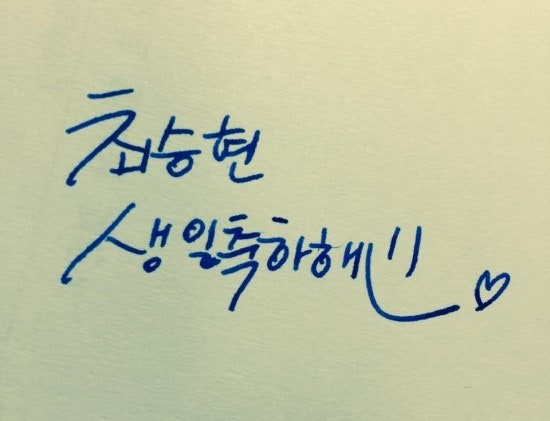 최승현
생일축하해!! ♡